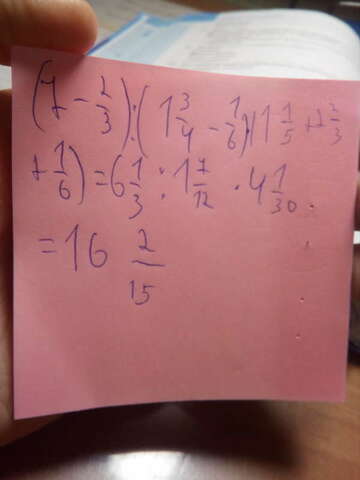 (7 - 2/3) : (1 3/4 - 1/6) · (1 1/5 + 2 2/3
+ 1/6) = 6 1/3 : 1 7/12 · 4 1/30 =
= 16 2/15